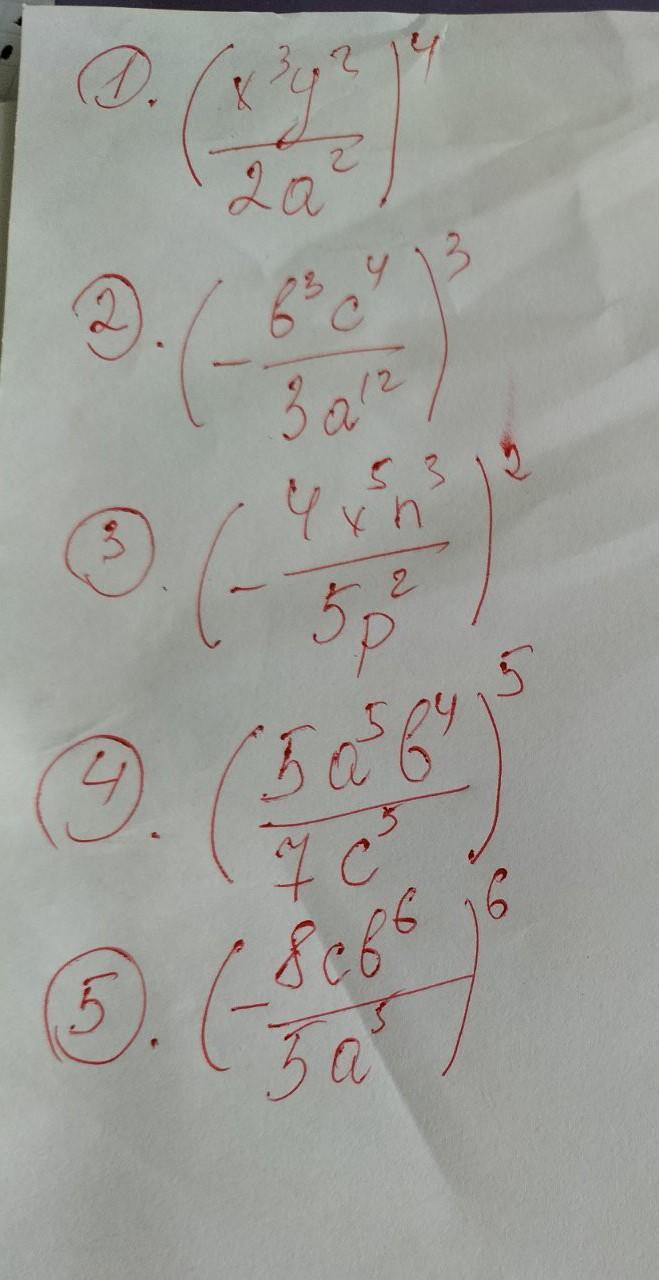 1. (x³y² / 2a²)⁴
2. (- b³c⁴ / 3a¹²)³
3. (- 4x⁵n³ / 5p²)²
4. (5a⁵b⁴ / 7c⁵)⁵
5. (- 8cb⁶ / 5a³)⁶